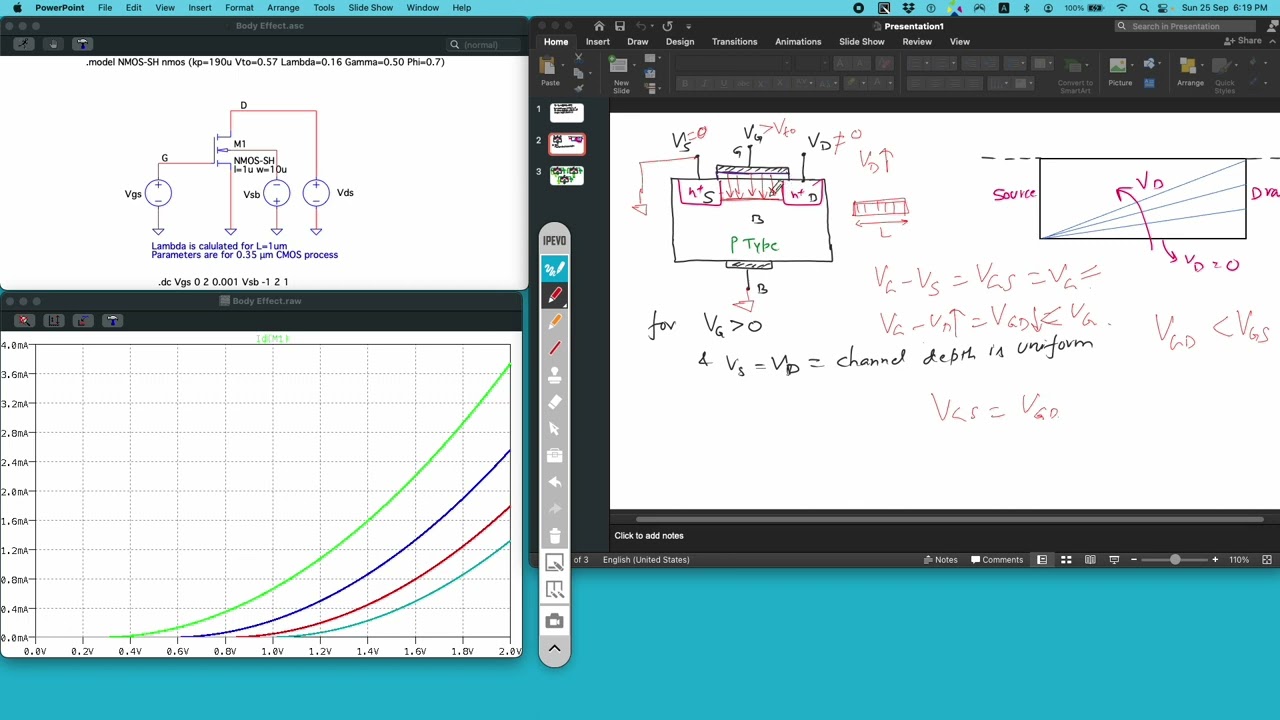 PowerPoint File Edit View Insert Format Arrange Tools Slide Show Window Help 100% Sun 25 Sep 6:19 PM
Body Effect.asc
(normal)
.model NMOS-SH nmos (kp=190u Vto=0.57 Lambda=0.16 Gamma=0.50 Phi=0.7)
D
M1
G
NMOS-SH
l=1u w=10u
Vgs
Vsb
Vds
Lambda is calulated for L=1um
Parameters are for 0.35 µm CMOS process
.dc Vgs 0 2 0.001 Vsb -1 2 1
Body Effect.raw
Id(M1)
4.0mA
3.6mA
3.2mA
2.8mA
2.4mA
2.0mA
1.6mA
1.2mA
0.8mA
0.4mA
0.0mA
0.0V 0.2V 0.4V 0.6V 0.8V 1.0V 1.2V 1.4V 1.6V 1.8V 2.0V
Presentation1
Search in Presentation
Home Insert Draw Design Transitions Animations Slide Show Review View
Share
Paste
New
Slide
Convert to
SmartArt
Picture
Arrange
Quick
Styles
1
2
3
IPEVO
VS=0
VG>Vto
VD≠0
G
VD↑
n+ S
n+ D
B
P Type
L
B
Source
VD
Dra
VD=0
VG-VS=VGS=VG=
for VG>0
VG-VD↑=VGD↓<VG.
VGD<VGS
& VS=VD= channel depth is uniform
VGS=VGD
Click to add notes
of 3 English (United States) Notes Comments 110%